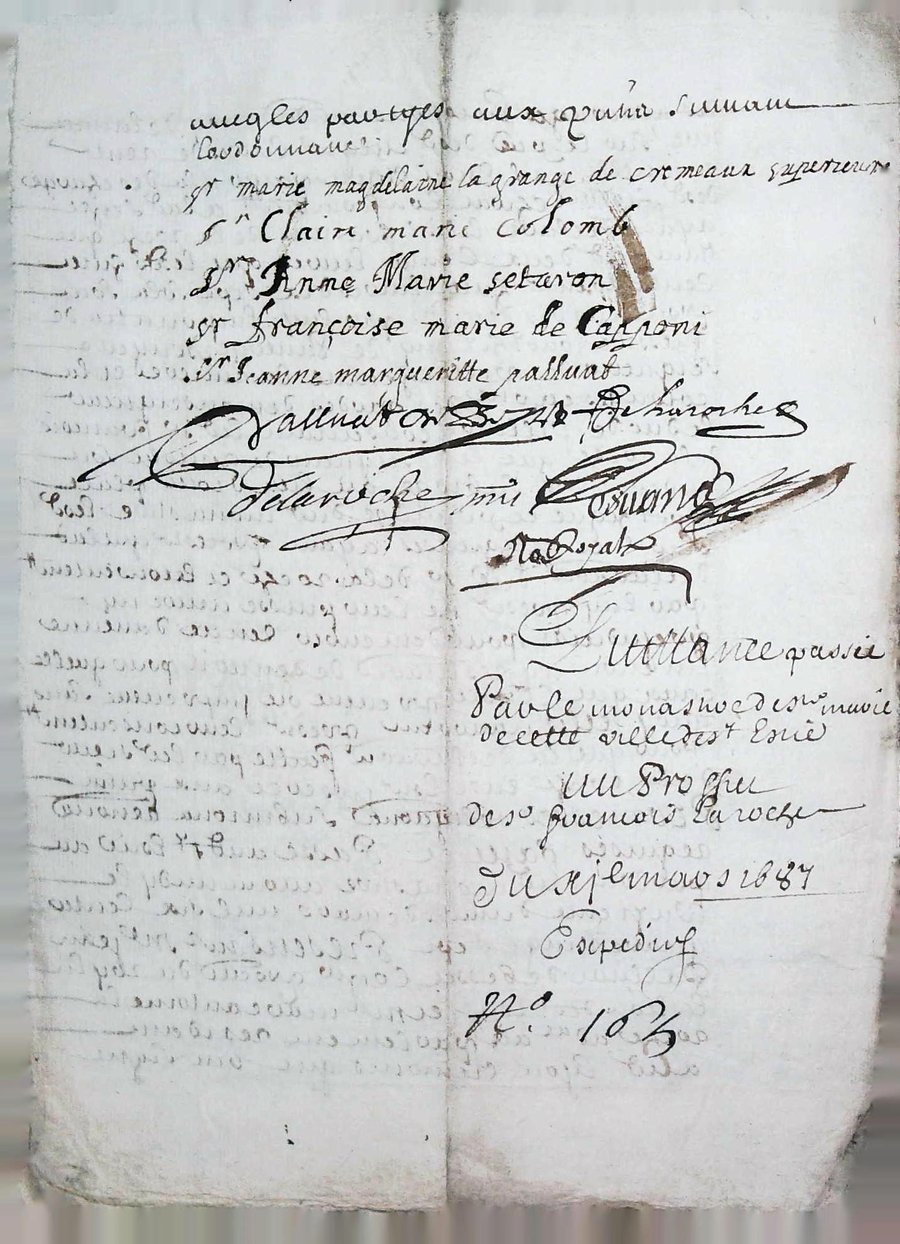 avec les partyes aux quils suivant
lordonnance
sr marie magdelaine la grange de cremeaux superieure
sr Claire marie Colomb
sr Anne Marie setaron
sr françoise marie de Capponi
sr Jeanne margueritte palluat
Palluat Deharoche
delaroche
No Royal
Quittance passée
Par le monastere de ste marie
de cette ville de st Estie
au Proffit
de sr francois Laroche
Du xje mars 1687
Expedié
No. 165